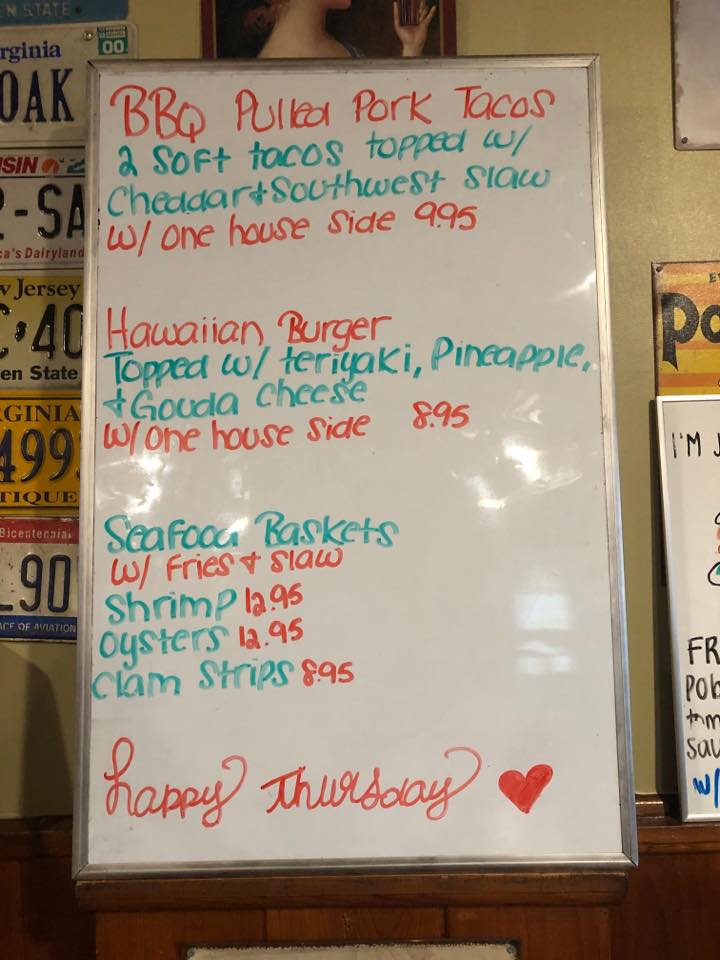 BBQ Pulled Pork Tacos
2 Soft tacos topped w/
Cheddar + Southwest Slaw
w/ one house side 9.95
Hawaiian Burger
Topped w/ teriyaki, Pineapple,
+ Gouda Cheese
w/ one house side 8.95
Seafood Baskets
w/ Fries + slaw
Shrimp 12.95
Oysters 12.95
Clam Strips 8.95
happy Thursday
EN STATE
rginia
00
OAK
SIN
-SA
ca's Dairyland
w Jersey
40
en State
GINIA
499
TIQUE
Bicentennial
90
ACE OF AVIATION
Po
I'M J
FR
POB
sau
w/